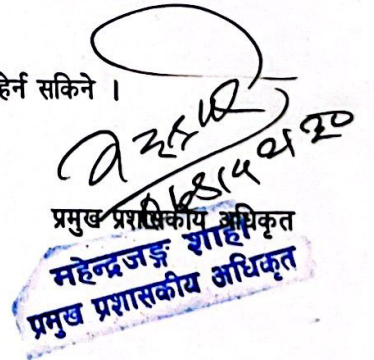 हेर्न सकिने ।
प्रमुख प्रशासकीय अधिकृत
महेन्द्रजङ्ग शाही
प्रमुख प्रशासकीय अधिकृत